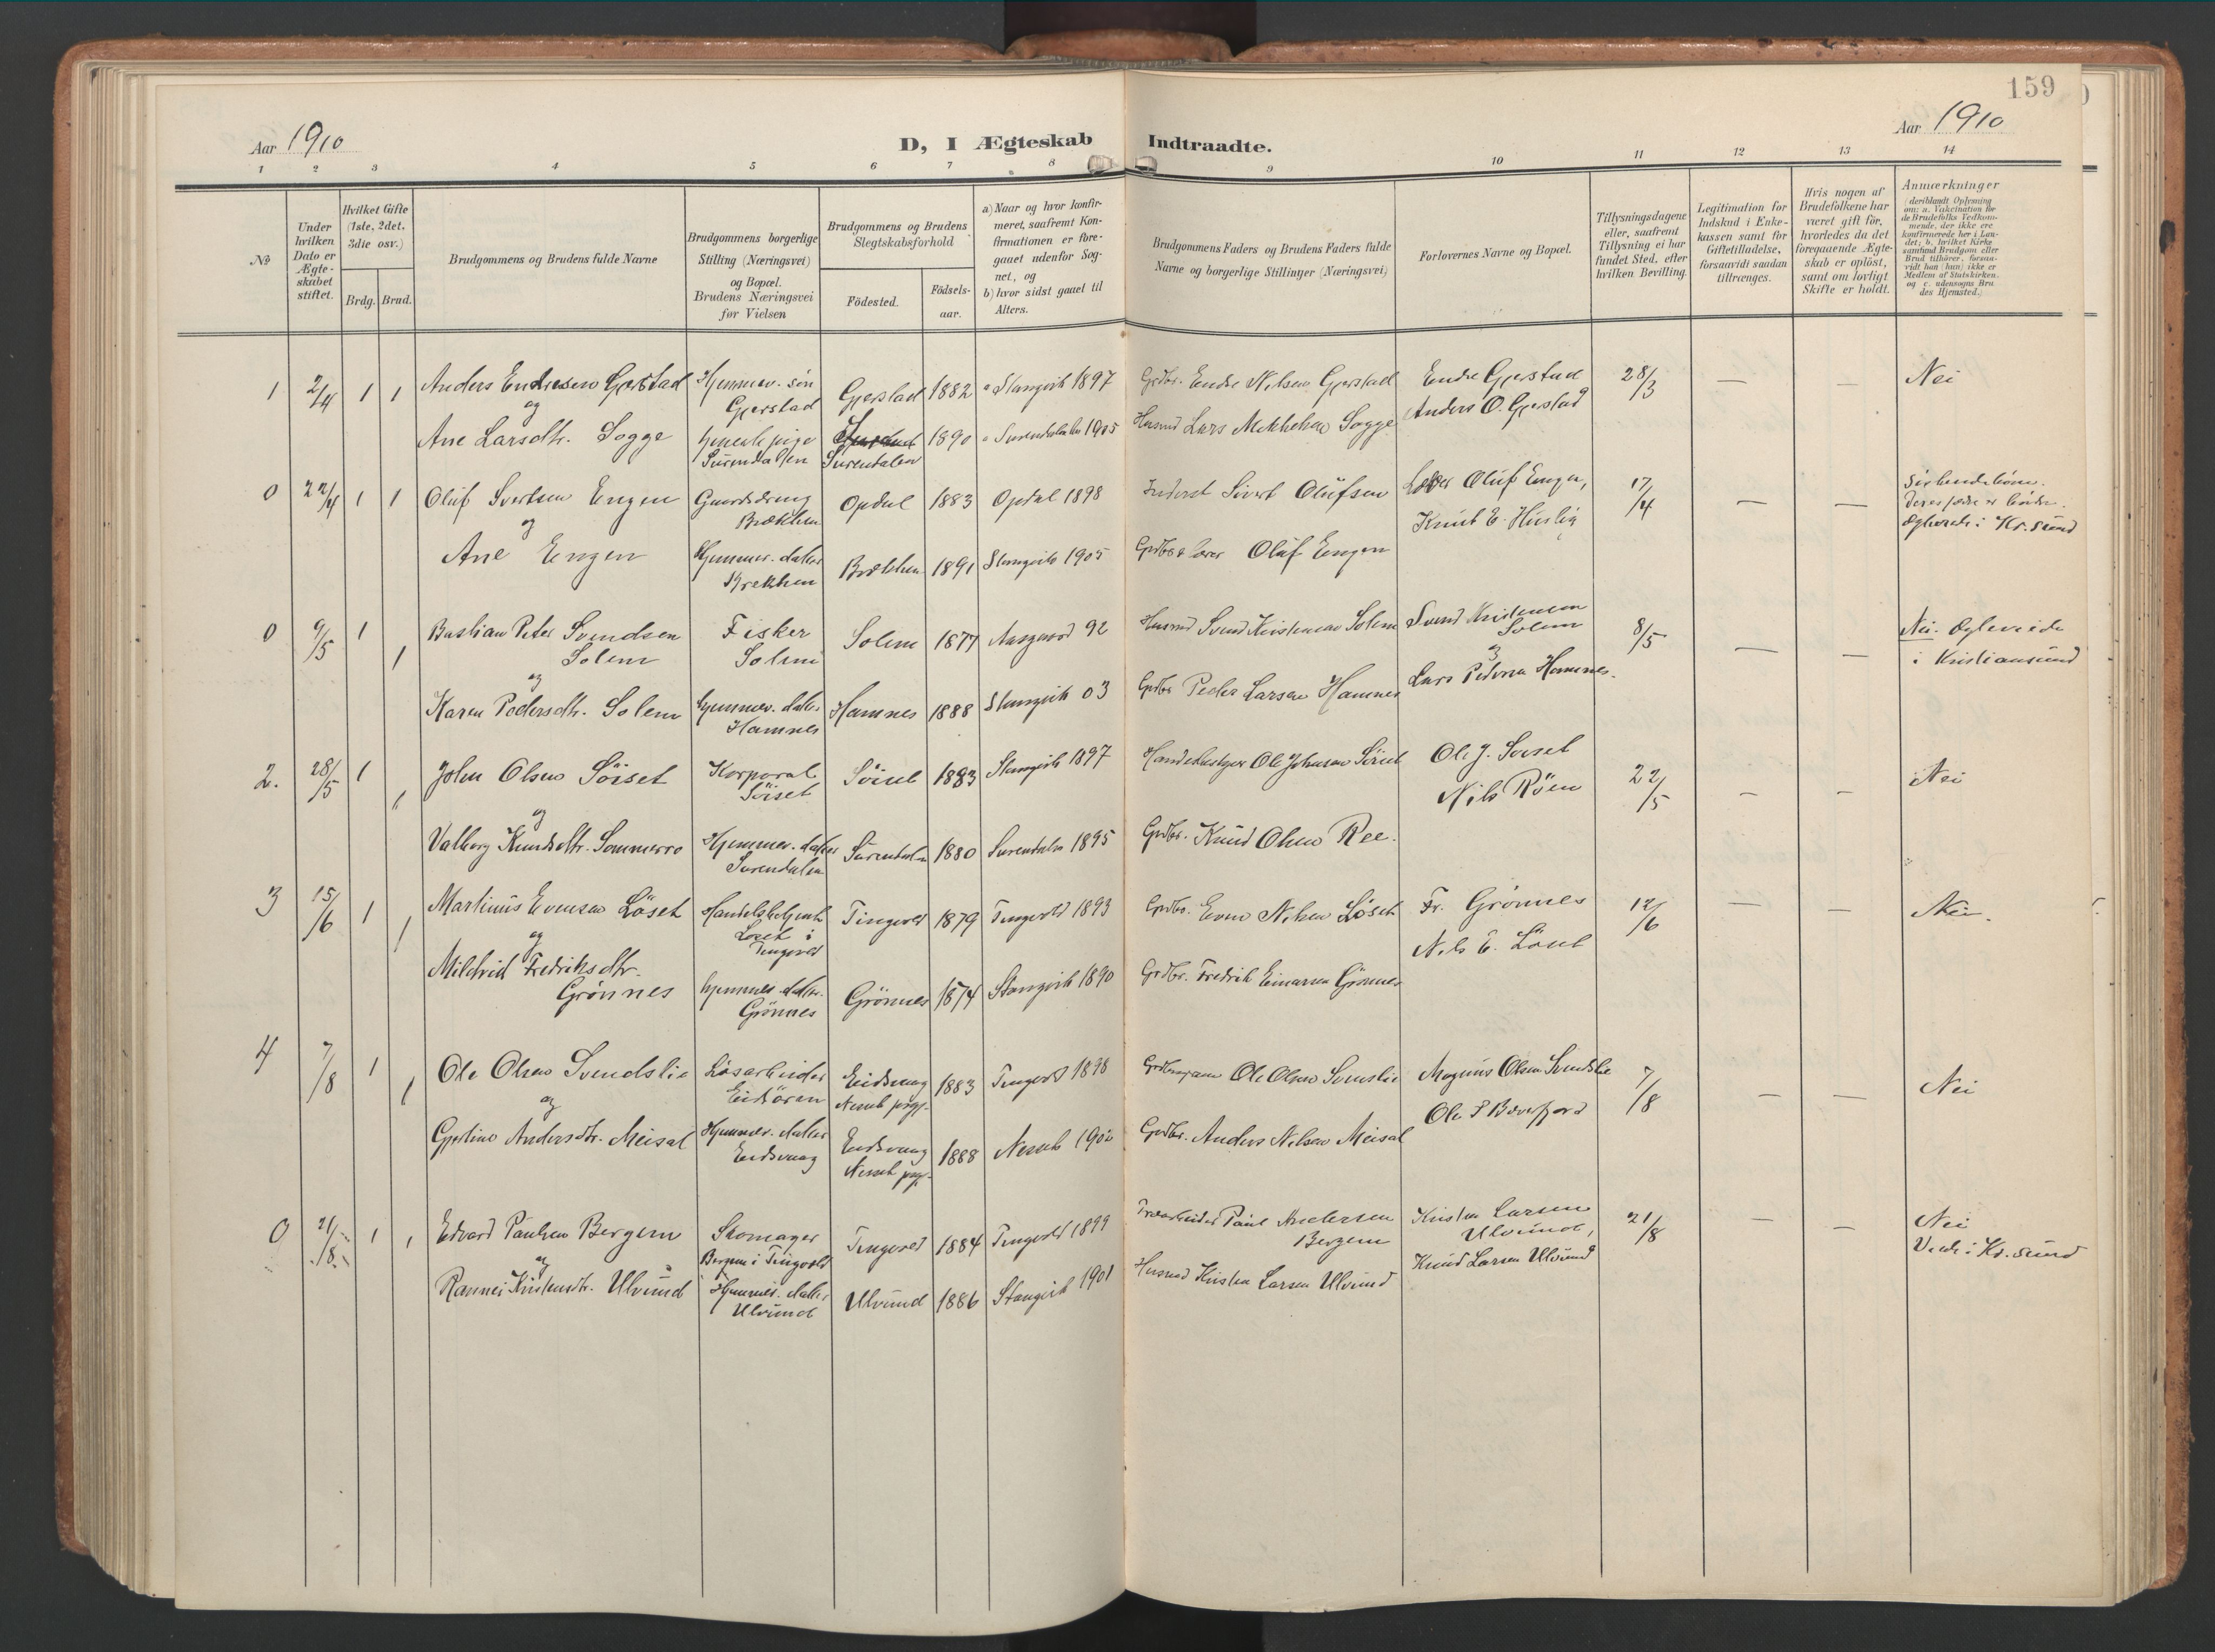 159
Aar 1910
D, I Ægteskab Indtraadte.
Aar 1910
1 2 3 4 5 6 7 8 9 10 11 12 13 14
No
Under hvilken Dato er Ægteskabet stiftet.
Hvilket Gifte (1ste, 2det, 3die osv.)
Brdg. Brud.
Brudgommens og Brudens fulde Navne
Brudgommens borgerlige Stilling (Næringsvei) og Bopæl. Brudens Næringsvei før Vielsen
Brudgommens og Brudens Slegtskabsforhold
Födested.
Födsels-aar.
a) Naar og hvor konfirmeret, saafremt Konfirmationen er foregaaet udenfor Sognet, og b) hvor sidst gaaet til Alters.
Brudgommens Faders og Brudens Faders fulde Navne og borgerlige Stillinger (Næringsvei)
Forlovernes Navne og Bopæl.
Tillysningsdagene eller, saafremt Tillysning ei har fundet Sted, efter hvilken Bevilling.
Legitimation for Indskud i Enkekassen samt for Giftetilladelse, forsaavidt saadan tiltrænges.
Hvis nogen af Brudefolkene har været gift før, hvorledes da det foregaaende Ægteskab er opløst, samt om lovligt Skifte er holdt.
Anmærkninger (deriblandt Oplysning om: a. Vakcination for de Brudefolks Vedkommende, der ikke ere konfirmerede her i Landet; b. hvilket Kirkesamfund Brudgom eller Brud tilhører, forsaavidt han (hun) ikke er Medlem af Statskirken, og c. udensogns Brudes Hjemsted.)
1 2/4 1 1 Anders Endresen Gjerstad Hjemmev. søn Gjerstad Gjerstad 1882 Stangvik 1897 Grdbr. Endre Nilsen Gjerstad Endre Gjerstad Anders O. Gjerstad 28/3 — — Nei
og
Ane Larsdtr. Sogge Surendalen Surendalen 1890 Surendalen 1905 Husmd Lars Sogge
0 22/4 1 1 Oluf Sivertsen Engen Gaardsdreng Brækken Opdal 1883 Opdal 1898 Inderst Sivert Olufsen Lærer Oluf Engen, Knut E. Huslig 17/4 — — Søskendebörn. Deres fædre er brødre. Ægteviede i Kr.sund
og
Ane Engen Hjemmev. datter Brækken Brækken 1891 Stangvik 1905 Grdbr & lærer Oluf Engen
0 9/5 1 1 Bastian Peter Svendsen Solem Fisker Solem Solem 1877 Aasgaard 92 Husmd Svend Kristensen Solem Svend Kristensen Solem og Lars Pedersen Hamnes. 8/5 — — Nei. Ægteviede i Kristiansund
og
Karen Pedersdtr. Solem hjemmev. datter Hamnes Hamnes 1888 Stangvik 03 Grdbr Peder Larsen Hamnes
2. 28/5 1 1 John Olsen Söiset Korporal Söiset Söiset 1883 Stangvik 1897 Ole Johnsen Söiset Ole J. Söiset Nils Röen 22/5 — — Nei
og
Valborg Knudsdtr. Sommerro Hjemmev. datter Surendalen Surendalen 1880 Surendalen 1895 Grdbr. Knud Olsen Ree.
3 15/6 1 1 Martinus Evensen Löset Handelsbetjent Löset i Tingvold Tingvold 1879 Tingvold 1893 Grdbr. Even Nilsen Löset Fr. Grönnes Nils E. Löset 12/6 — — Nei.
og
Mildrid Fredriksdtr. Grönnes hjemmev. datter. Grönnes Grönnes 1874 Stangvik 1890 Grdbr. Fredrik Einarsen Grönnes
4 7/8 1 1 Ole Olsen Svendslie Lösarbeider Eidsören Eidsvaag Nesset prgj. 1883 Tingvold 1898 Ole Olsen Svenslie Magnus Olsen Svendslie Ole P Bævefjord 7/8 — — Nei
og
Gjertine Andersdtr. Meisal Hjemmev. datter Eidsvaag Eidsvaag Nesset prgj. 1888 Nesset 1902 Grdbr. Anders Nilsen Meisal
0 21/8 1 1 Edvard Paulsen Bergem Skomager Bergem i Tingvold Tingvold 1884 Tingvold 1899 Træarbeider Paul Andersen Bergem Kristen Larsen Ulvund, Knud Larsen Ulvund 21/8 — — Nei Viede i Kr.sund
og
Rannei Kristensdtr. Ulvund Hjemmev. datter Ulvund Ulvund 1886 Stangvik 1901 Husmd Kristen Larsen Ulvund